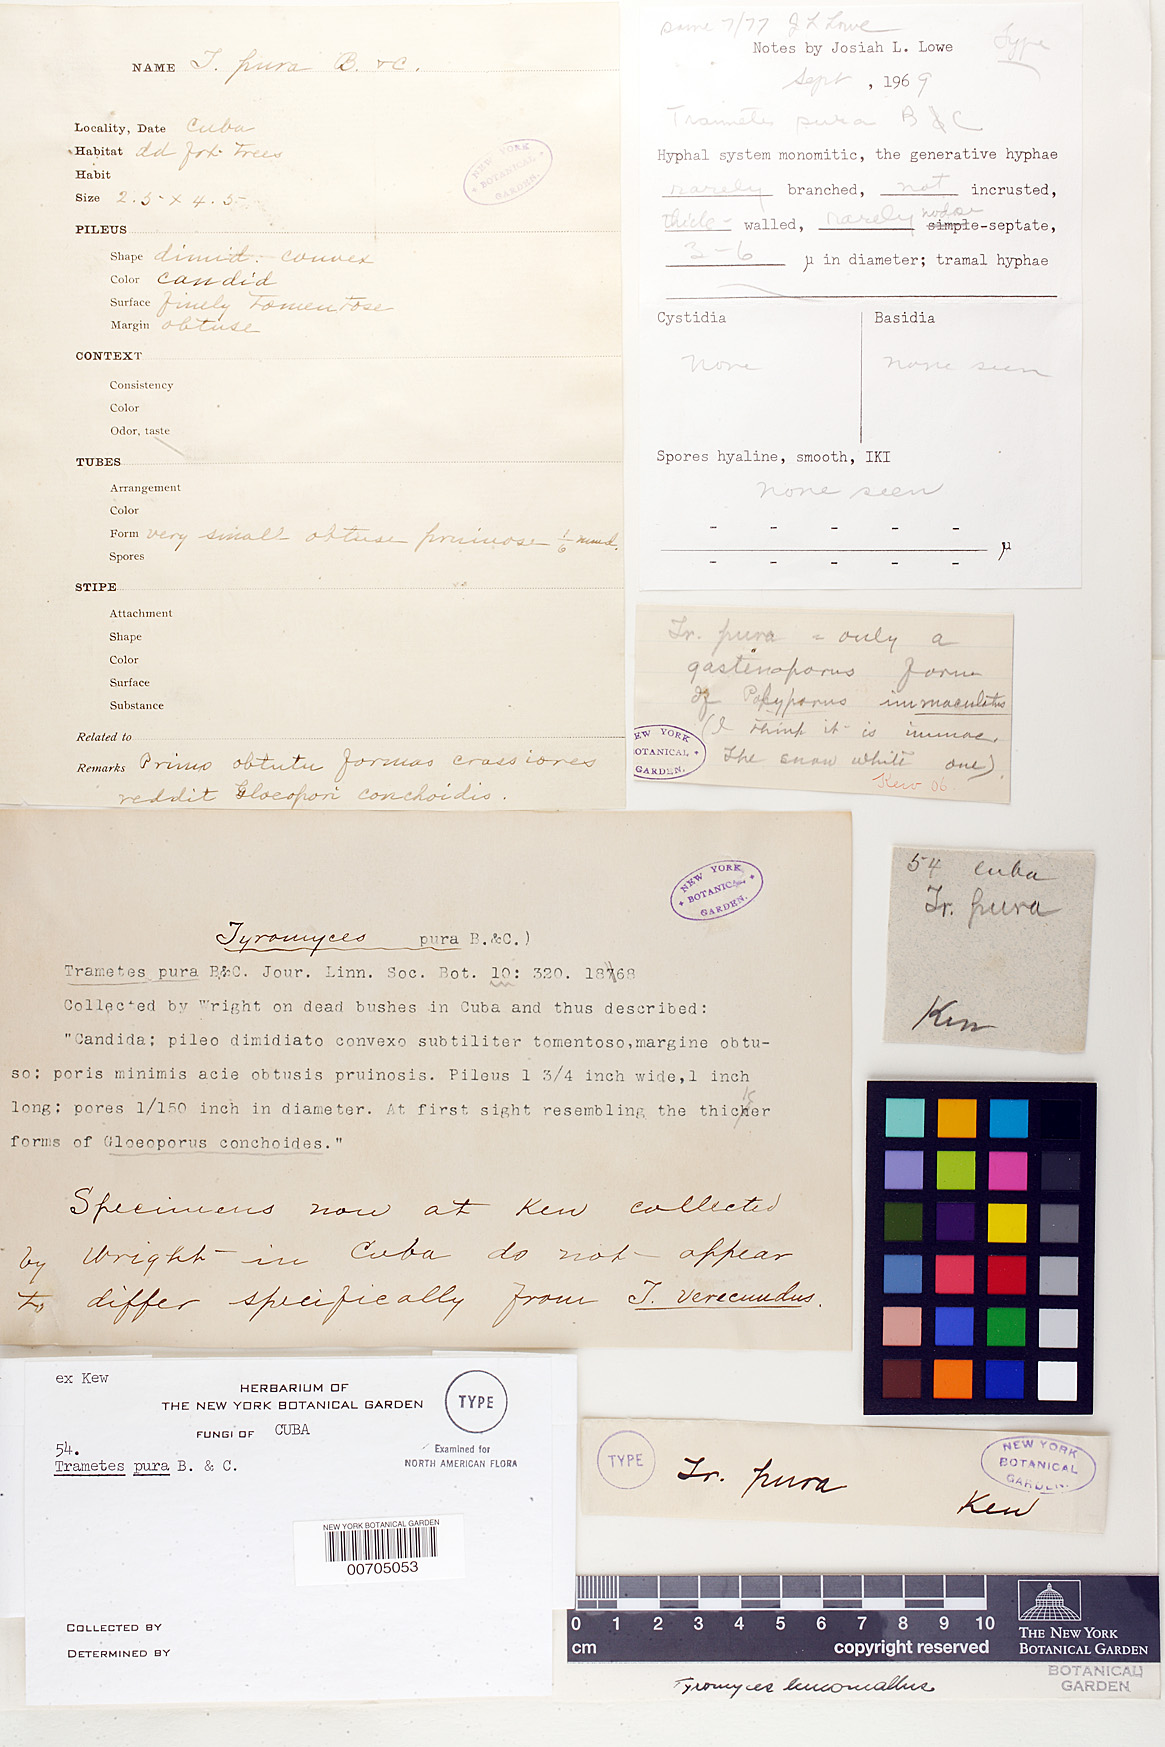 NAME T. pura B. & C.
Locality, Date Cuba
Habitat dd for. Trees
Habit
Size 2.5 x 4.5
PILEUS
Shape dimid. convex
Color candid
Surface finely tomentose
Margin obtuse
CONTEXT
Consistency
Color
Odor, taste
TUBES
Arrangement
Color
Form very small obtuse pruinose 1/6 mmd.
Spores
STIPE
Attachment
Shape
Color
Surface
Substance
Related to
Remarks Primo obtutu formas crassiores
reddit Gloeopori conchoidis.
NEW YORK
BOTANICAL
GARDEN.
same 7/77 J L Lowe
Notes by Josiah L. Lowe
Type
Sept, 1969
Trametes pura B & C
Hyphal system monomitic, the generative hyphae
rarely branched, not incrusted,
thick-walled, rarely nodose simple-septate,
3-6 µ in diameter; tramal hyphae
Cystidia
Basidia
none
none seen
Spores hyaline, smooth, IKI
none seen
- - - - -
µ
- - - - -
Tr. pura = only a
gastenoporus form
of Polyporus immaculatus
(I think it is immac.
the snow white one).
Kew 06
NEW YORK
BOTANICAL
GARDEN.
NEW YORK
BOTANICAL
GARDEN.
Tyromyces pura B.&C.)
Trametes pura B&C. Jour. Linn. Soc. Bot. 10: 320. 1868
Collected by Wright on dead bushes in Cuba and thus described:
"Candida; pileo dimidiato convexo subtiliter tomentoso,margine obtu-
so; poris minimis acie obtusis pruinosis. Pileus 1 3/4 inch wide,1 inch
long; pores 1/150 inch in diameter. At first sight resembling the thicker
forms of Gloeoporus conchoides."
Specimens now at Kew collected
by Wright in Cuba do not appear
to differ specifically from T. verecundus.
54 Cuba
Tr. pura
Kew
ex Kew
HERBARIUM OF
THE NEW YORK BOTANICAL GARDEN
TYPE
FUNGI OF CUBA
54.
Trametes pura B. & C.
Examined for
NORTH AMERICAN FLORA
NEW YORK BOTANICAL GARDEN
00705053
COLLECTED BY
DETERMINED BY
TYPE
Tr. pura
Kew
NEW YORK
BOTANICAL
GARDEN.
0 1 2 3 4 5 6 7 8 9 10
cm
copyright reserved
THE NEW YORK
BOTANICAL GARDEN
BOTANICAL
GARDEN
Tyromyces leucomallus